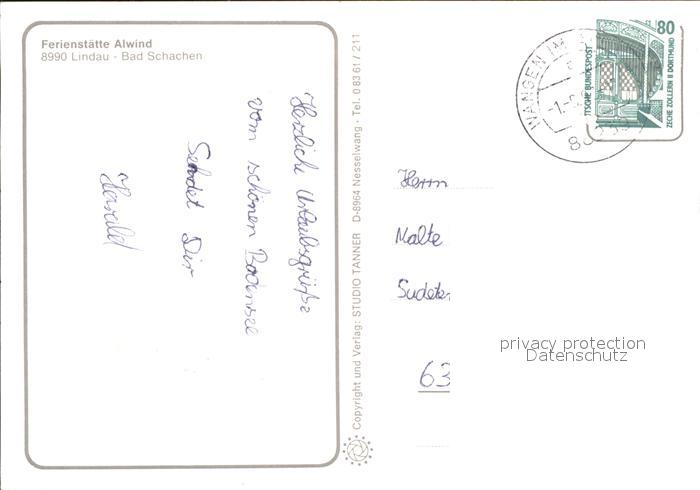 Ferienstätte Alwind
8990 Lindau - Bad Schachen
Herzliche Urlaubsgrüße
vom schönen Bodensee
Sendet Dir
Harald
Copyright und Verlag: STUDIO TANNER D-8964 Nesselwang · Tel. 0 83 61 / 211
WANGEN IM
80
ZECHE ZOLLERN II DORTMUND
TSCHE BUNDESPOST
Herrn
Malte
Sudeten
63
privacy protection
Datenschutz